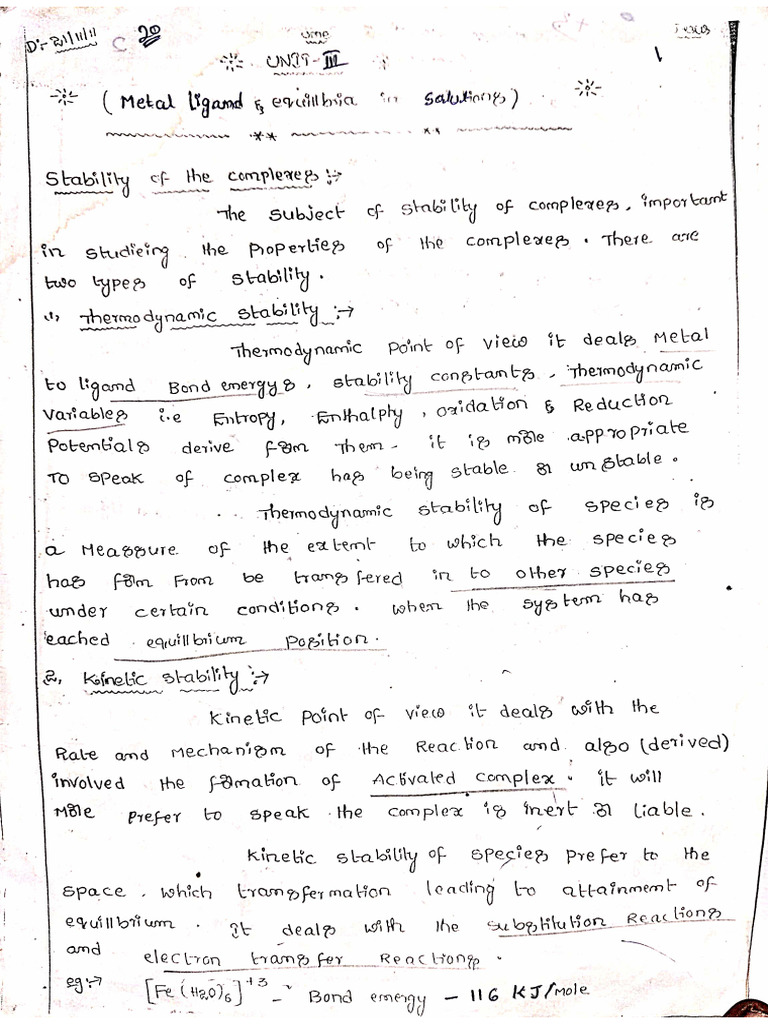 C 20
UNIT-III
1
(Metal ligand & equillbria in solutions)
Stability of the complexes :->
The subject of stability of complexes, important
in studieing the properties of the complexes. There are
two types of stability.
1, Thermodynamic stability :->
Thermodynamic point of view it deals Metal
to ligand Bond energys, stability constants, Thermodynamic
variables i.e Entropy, Enthalphy, oxidation & Reduction
Potentials derive from them. it is more appropriate
TO speak of complex has being stable or unstable.
Thermodynamic stability of species is
a Measure of the extent to which the species
has form From be transfered in to other species
under certain conditions. when the system has
eached equillbrium position.
2, Kinetic stability :->
Kinetic point of view it deals with the
Rate and Mechanism of the Reaction and also (derived)
involved the formation of Activated complex. it will
More prefer to speak the complex is inert or liable.
Kinetic stability of species prefer to the
space. which transfermation leading to attainment of
equillbrium. It deals with the substitution Reactions
and electron transfer Reactions.
eg:-> [Fe(H2O)6]+3 - Bond energy - 116 KJ/mole